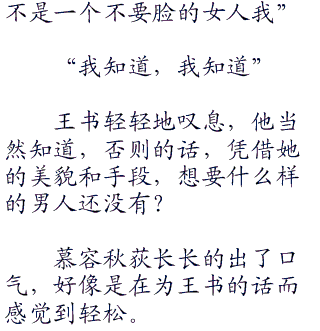 不是一个不要脸的女人我”
“我知道，我知道”
王书轻轻地叹息，他当
然知道，否则的话，凭借她
的美貌和手段，想要什么样
的男人还没有？
慕容秋荻长长的出了口
气，好像是在为王书的话而
感觉到轻松。